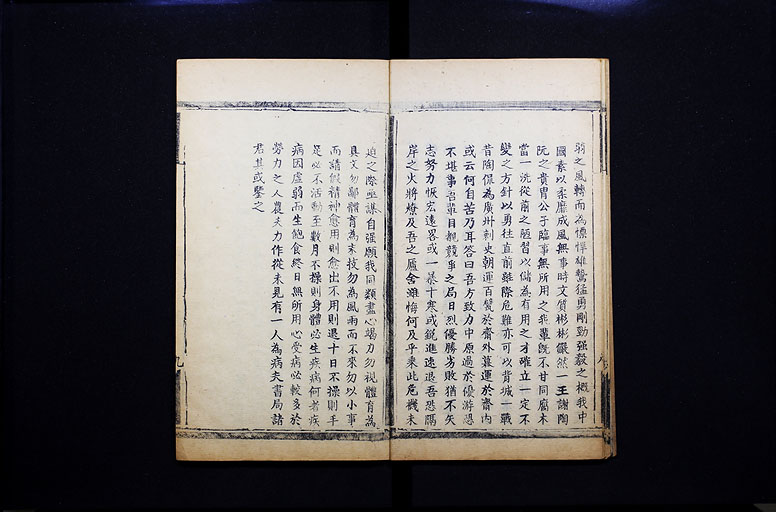 弱之風轉而為慓悍雄鷙猛勇剛勁强毅之概我中
國素以柔靡成風無事時文質彬彬儼然一王謝陶
阮之貴冑公子臨事無所用之我輩旣不甘同腐木
當一洗從前之陋習以儲為有用之才確立一定不
變之方針以勇往直前雖際危難亦可以背城一戰
昔陶侃為廣州刺史朝運百甓於齋外暮運於齋內
或云何自苦乃耳答曰吾方致力中原過於優游恐
不堪事吾輩目覩競爭之局日烈優勝劣敗猶不矢
志努力恢宏遠畧或一暴十寒或銳進速退吾恐隔
岸之火將燎及吾之廬舍雖悔何及乎乘此危機未
迫之際亟謀自强願我同類盡心竭力勿視體育為
具文勿鄙體育為末技勿為風雨而不來勿以小事
而請假精神愈用則愈出不用則退十日不操則手
足必不活動至數月不操則身體必生疾病何者疾
病因虛弱而生飽食終日無所用心受病必較多於
勞力之人農夫力作從未見有一人為病夫書局諸
君其或鑒之
九